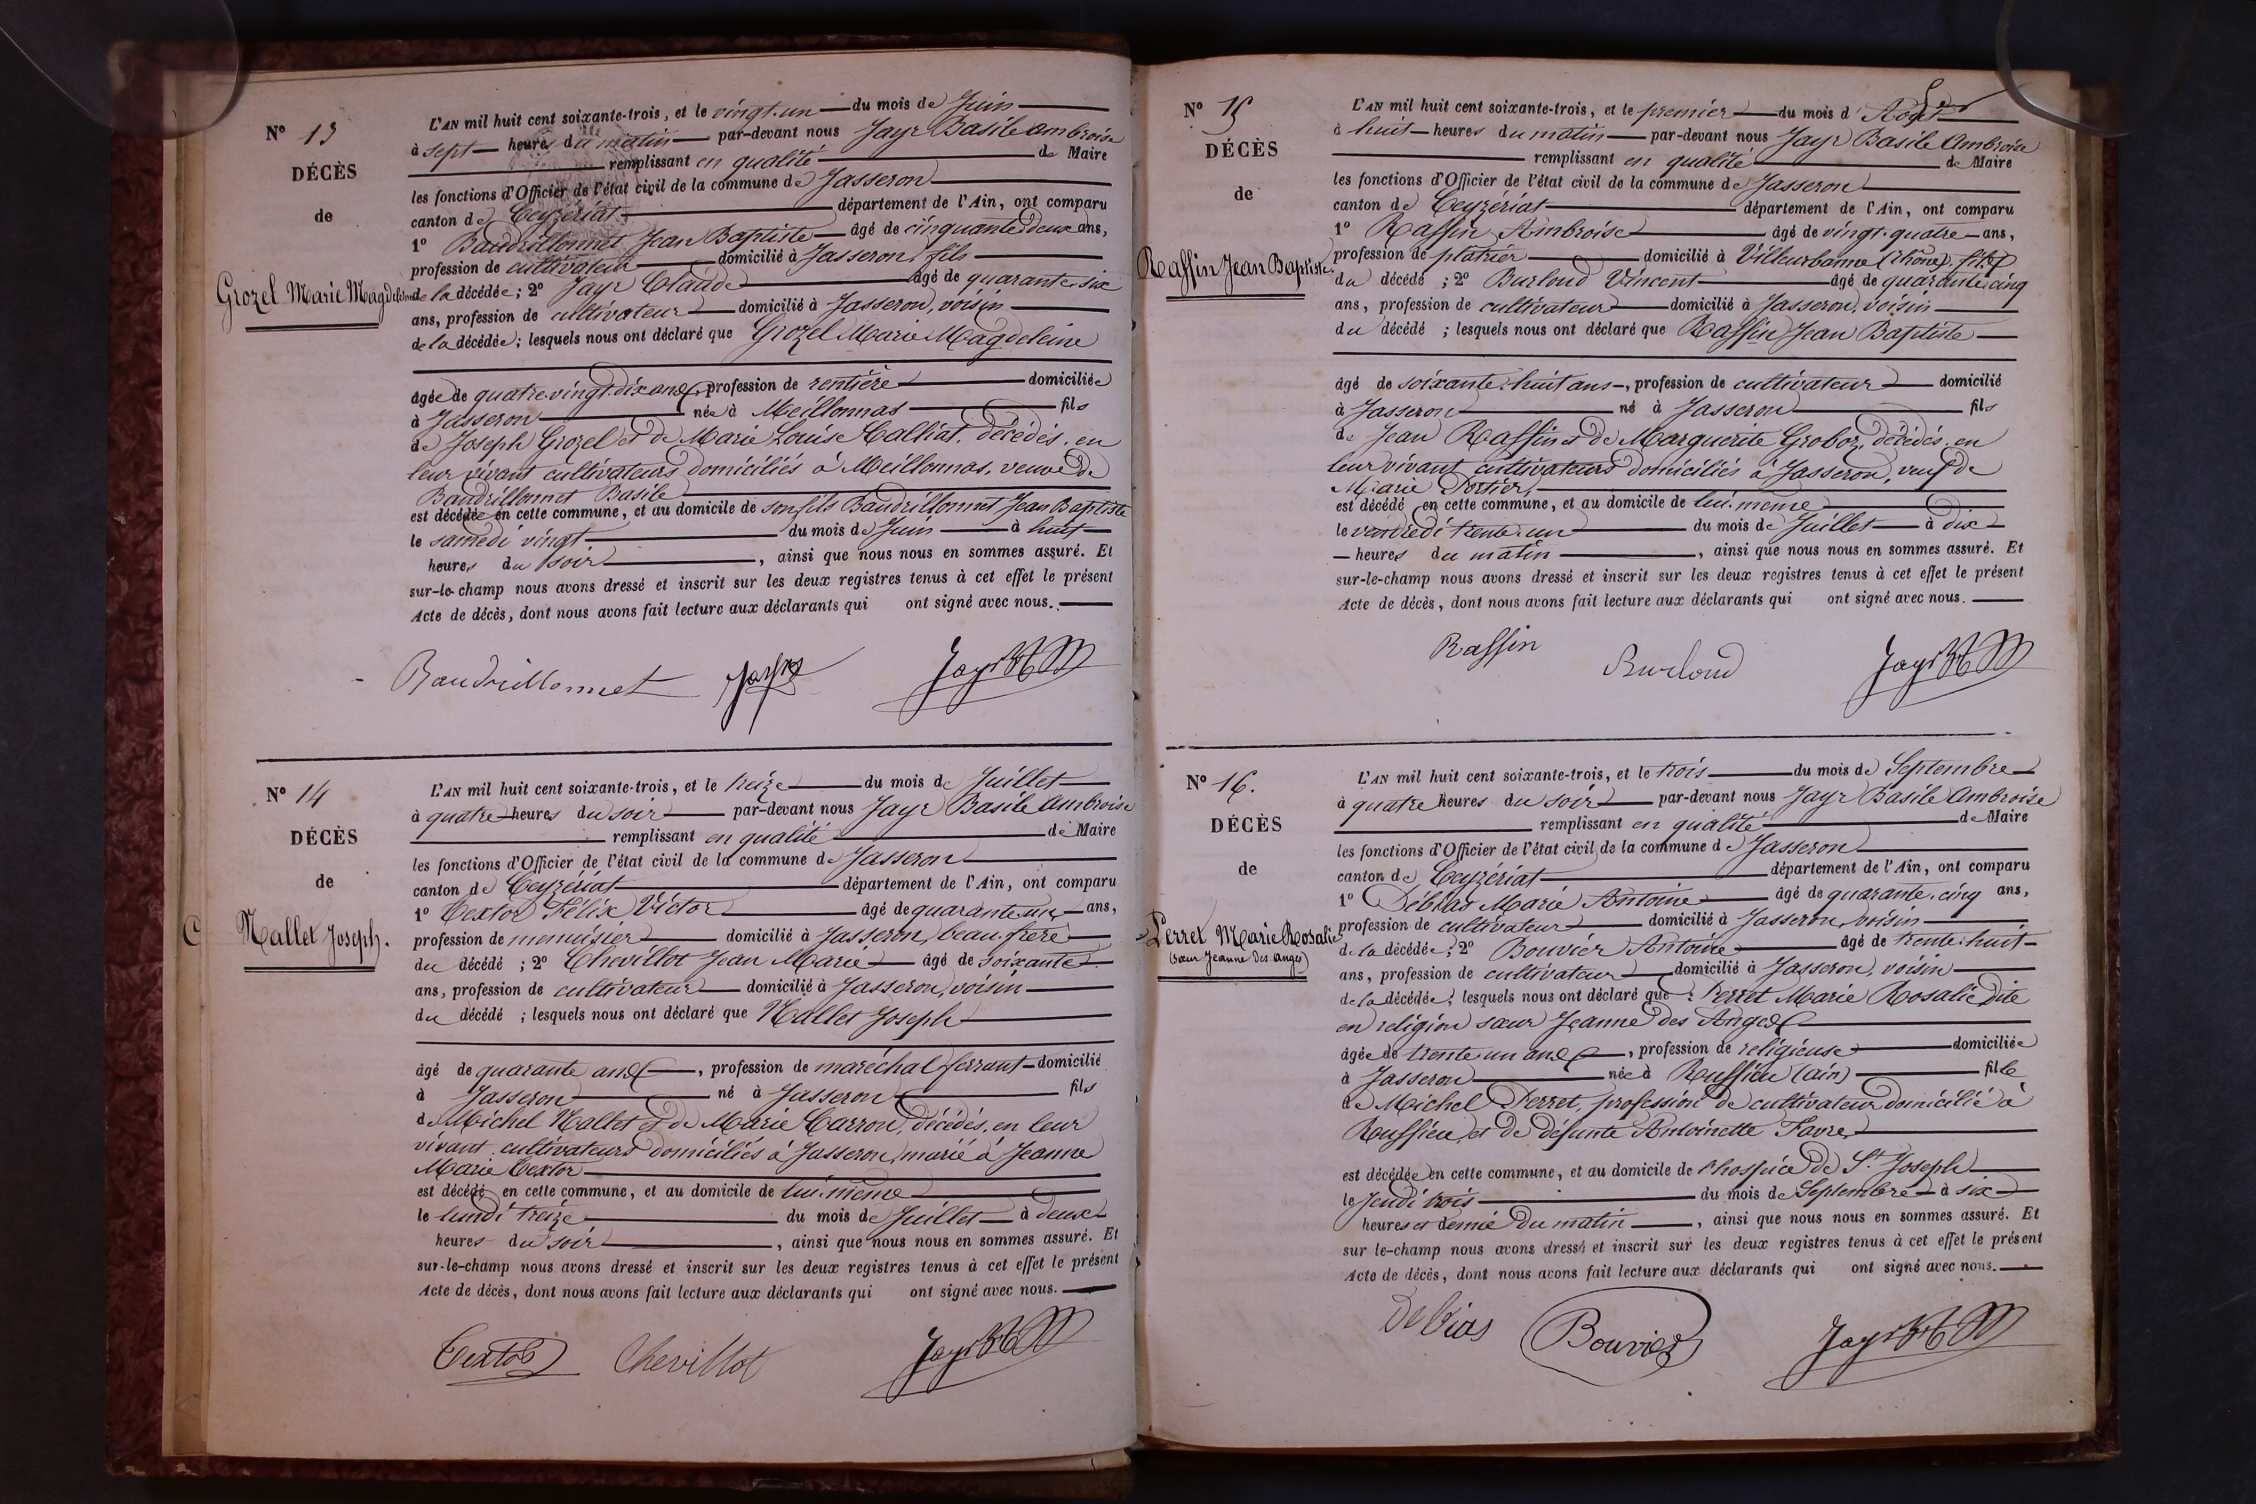 N° 13
DÉCÈS
de
Grozel Marie Magdeleine
L'AN mil huit cent soixante-trois, et le vingt-un du mois de Juin
à sept heures du matin par-devant nous Jayr Basile Ambroise
remplissant en qualité de Maire
les fonctions d'Officier de l'état civil de la commune de Jasseron
canton de Ceyzériat département de l'Ain, ont comparu
1° Baudrillonnet Jean Baptiste âgé de cinquante deux ans,
profession de cultivateur domicilié à Jasseron, fils
de la décédée; 2° Jayr Claude âgé de quarante-six
ans, profession de cultivateur domicilié à Jasseron, voisin
de la décédée; lesquels nous ont déclaré que Grozel Marie Magdeleine
âgée de quatre vingt dix ans, profession de rentière domiciliée
à Jasseron née à Meillonnas fils
de Joseph Grozel et de Marie Louise Calliat, décédés, en
leur vivant cultivateurs domiciliés à Meillonnas, veuve de
Baudrillonnet Basile
est décédée en cette commune, et au domicile de son fils Baudrillonnet Jean Baptiste
le samedi vingt du mois de Juin à huit
heures du soir, ainsi que nous nous en sommes assuré. Et
sur-le-champ nous avons dressé et inscrit sur les deux registres tenus à cet effet le présent
Acte de décès, dont nous avons fait lecture aux déclarants qui ont signé avec nous.
Baudrillonnet Jayr Jayr
N° 14
DÉCÈS
de
C
Mallet Joseph.
L'AN mil huit cent soixante-trois, et le treize du mois de Juillet
à quatre heures du soir par-devant nous Jayr Basile Ambroise
remplissant en qualité de Maire
les fonctions d'Officier de l'état civil de la commune de Jasseron
canton de Ceyzériat département de l'Ain, ont comparu
1° Textor Félix Victor âgé de quarante-un ans,
profession de menuisier domicilié à Jasseron, beau-frère
du décédé; 2° Chevillot Jean Marie âgé de soixante
ans, profession de cultivateur domicilié à Jasseron, voisin
du décédé; lesquels nous ont déclaré que Mallet Joseph
âgé de quarante ans, profession de maréchal ferrant domicilié
à Jasseron né à Jasseron fils
de Michel Mallet et de Marie Carron, décédés, en leur
vivant cultivateurs domiciliés à Jasseron, marié à Jeanne
Marie Textor
est décédé en cette commune, et au domicile de lui-même
le lundi treize du mois de Juillet à deux
heures du soir, ainsi que nous nous en sommes assuré. Et
sur-le-champ nous avons dressé et inscrit sur les deux registres tenus à cet effet le présent
Acte de décès, dont nous avons fait lecture aux déclarants qui ont signé avec nous.
Textor Chevillot Jayr
N° 15
DÉCÈS
de
Raffin Jean Baptiste
L'AN mil huit cent soixante-trois, et le premier du mois d'Août
à huit heures du matin par-devant nous Jayr Basile Ambroise
remplissant en qualité de Maire
les fonctions d'Officier de l'état civil de la commune de Jasseron
canton de Ceyzériat département de l'Ain, ont comparu
1° Raffin Ambroise âgé de vingt-quatre ans,
profession de plâtrier domicilié à Villeurbanne (Rhône), fils
du décédé; 2° Burloud Vincent âgé de quarante-cinq
ans, profession de cultivateur domicilié à Jasseron, voisin
du décédé; lesquels nous ont déclaré que Raffin Jean Baptiste
âgé de soixante-huit ans, profession de cultivateur domicilié
à Jasseron né à Jasseron fils
de Jean Raffin et de Marguerite Groboz, décédés, en
leur vivant cultivateurs domiciliés à Jasseron, veuf de
Marie Portier
est décédé en cette commune, et au domicile de lui-même
le vendredi trente-un du mois de Juillet à dix
heures du matin, ainsi que nous nous en sommes assuré. Et
sur-le-champ nous avons dressé et inscrit sur les deux registres tenus à cet effet le présent
Acte de décès, dont nous avons fait lecture aux déclarants qui ont signé avec nous.
Raffin Burloud Jayr
N° 16.
DÉCÈS
de
Perret Marie Rosalie
(Sœur Jeanne des anges)
L'AN mil huit cent soixante-trois, et le trois du mois de Septembre
à quatre heures du soir par-devant nous Jayr Basile Ambroise
remplissant en qualité de Maire
les fonctions d'Officier de l'état civil de la commune de Jasseron
canton de Ceyzériat département de l'Ain, ont comparu
1° Débias Marie Antoine âgé de quarante-cinq ans,
profession de cultivateur domicilié à Jasseron, voisin
de la décédée; 2° Bouvier Antoine âgé de trente-huit
ans, profession de cultivateur domicilié à Jasseron, voisin
de la décédée; lesquels nous ont déclaré que Perret Marie Rosalie dite
en religion sœur Jeanne des Anges
âgée de trente-un ans, profession de religieuse domiciliée
à Jasseron née à Ruffieu (ain) fille
de Michel Perret, profession de cultivateur domicilié à
Ruffieu et de défunte Antoinette Favre
est décédée en cette commune, et au domicile de l'hospice de St. Joseph
le Jeudi trois du mois de Septembre à six
heures et demie du matin, ainsi que nous nous en sommes assuré. Et
sur le-champ nous avons dressé et inscrit sur les deux registres tenus à cet effet le présent
Acte de décès, dont nous avons fait lecture aux déclarants qui ont signé avec nous.
Debias Bouvier Jayr